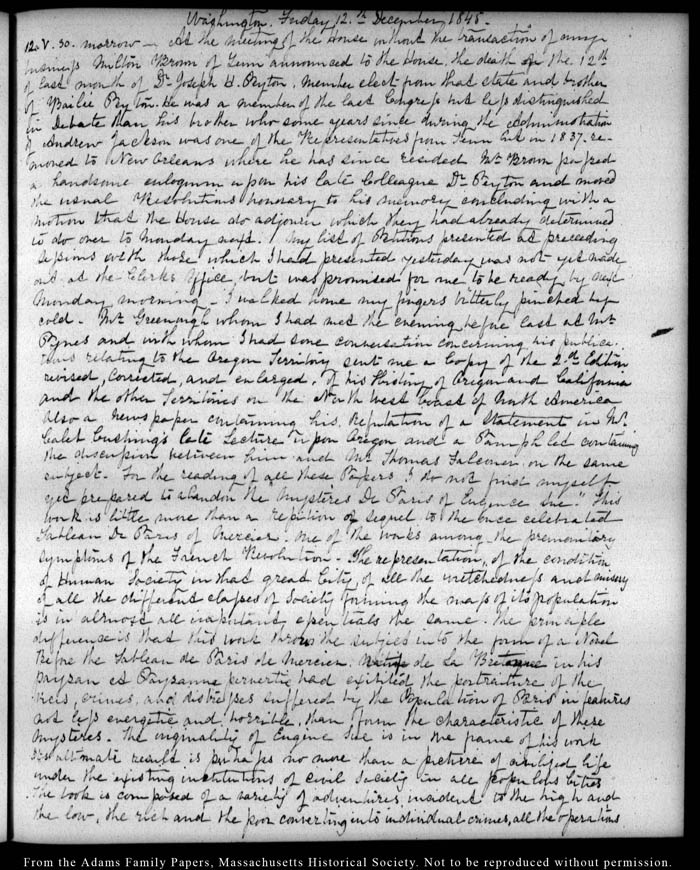 Washington. Friday 12.th December 1845.
12. V. 30. morrow — At the meeting of the House without the transaction of any
business Milton Brown of Tenn announced to the House, the death on the 12th
of last month of Dr Joseph H. Peyton, member elect from that state and brother
of Bailie Peyton. He was a member of the last Congress but less distinguished
in Debate than his brother who some years since during the Administration
of Andrew Jackson was one of the Representatives from Tenn but in 1837. re-
moved to New Orleans where he has since resided Mr Brown
a handsome eulogium upon his late Colleague Dr Peyton and moved
the usual Resolutions honorary to his memory concluding with a
motion that the House do adjourn which they had already determined
to do over to Monday next. My list of Petitions presented at preceding
sessions with those which I had presented yesterday was not yet made
out at the Clerks Office, but was promised for me to be ready by next
Monday morning — I walked home my fingers bitterly pinched by
cold. Mr Greenhough whom I had met the evening before last at Mr
and with whom I had some conversation concerning his publica-
tions relating to the Oregon Territory sent me a Copy of the 2.d Edition
revised, Corrected, and enlarged, of his History of Oregon and California
and the other Territories on the North West Coast of North America
also a newspaper containing his Refutation of a Statement in Mr
Caleb Cushing's late Lecture upon Oregon and a Pamphlet containing
the discussion between him and Mr Thomas Falconer, on the same
subject. For the reading of all these Papers I do not find myself
yet prepared to abandon the Mysteres De Paris of Eugence Sue." This
work is little more than a repition or sequel to the once celebrated
Tableau De Paris of Mercier. One of the works among the premonitary
symptoms of the French Revolution. The representation, of the condition
of Human Society in that great City, of all the wretchedness and misery
of all the different classes of Society forming the mass of its population
is in almost all important, essentials the same. The principle
difference is that this work throws the subject into the form of a Novel
Before the Tableau de Paris de Mercier, de La Bretonne in his
paysan et Paysanne pervertie had exibited the portraiture of the
vices, crimes, and distresses suffered by the Population of Paris in features
not less energetic and horrible, than form the characteristic of these
Mysteres. The originality of Eugene Sue is in the frame of his work
Its ultimate result is perhaps no more than a picture of life
under the existing institutions of civil Society in all populous Cities
The book is composed of a variety of adventures, incident to the high and
the low, the rich and the poor converting into individual crimes, all the operations
From the Adams Family Papers, Massachusetts Historical Society. Not to be reproduced without permission.